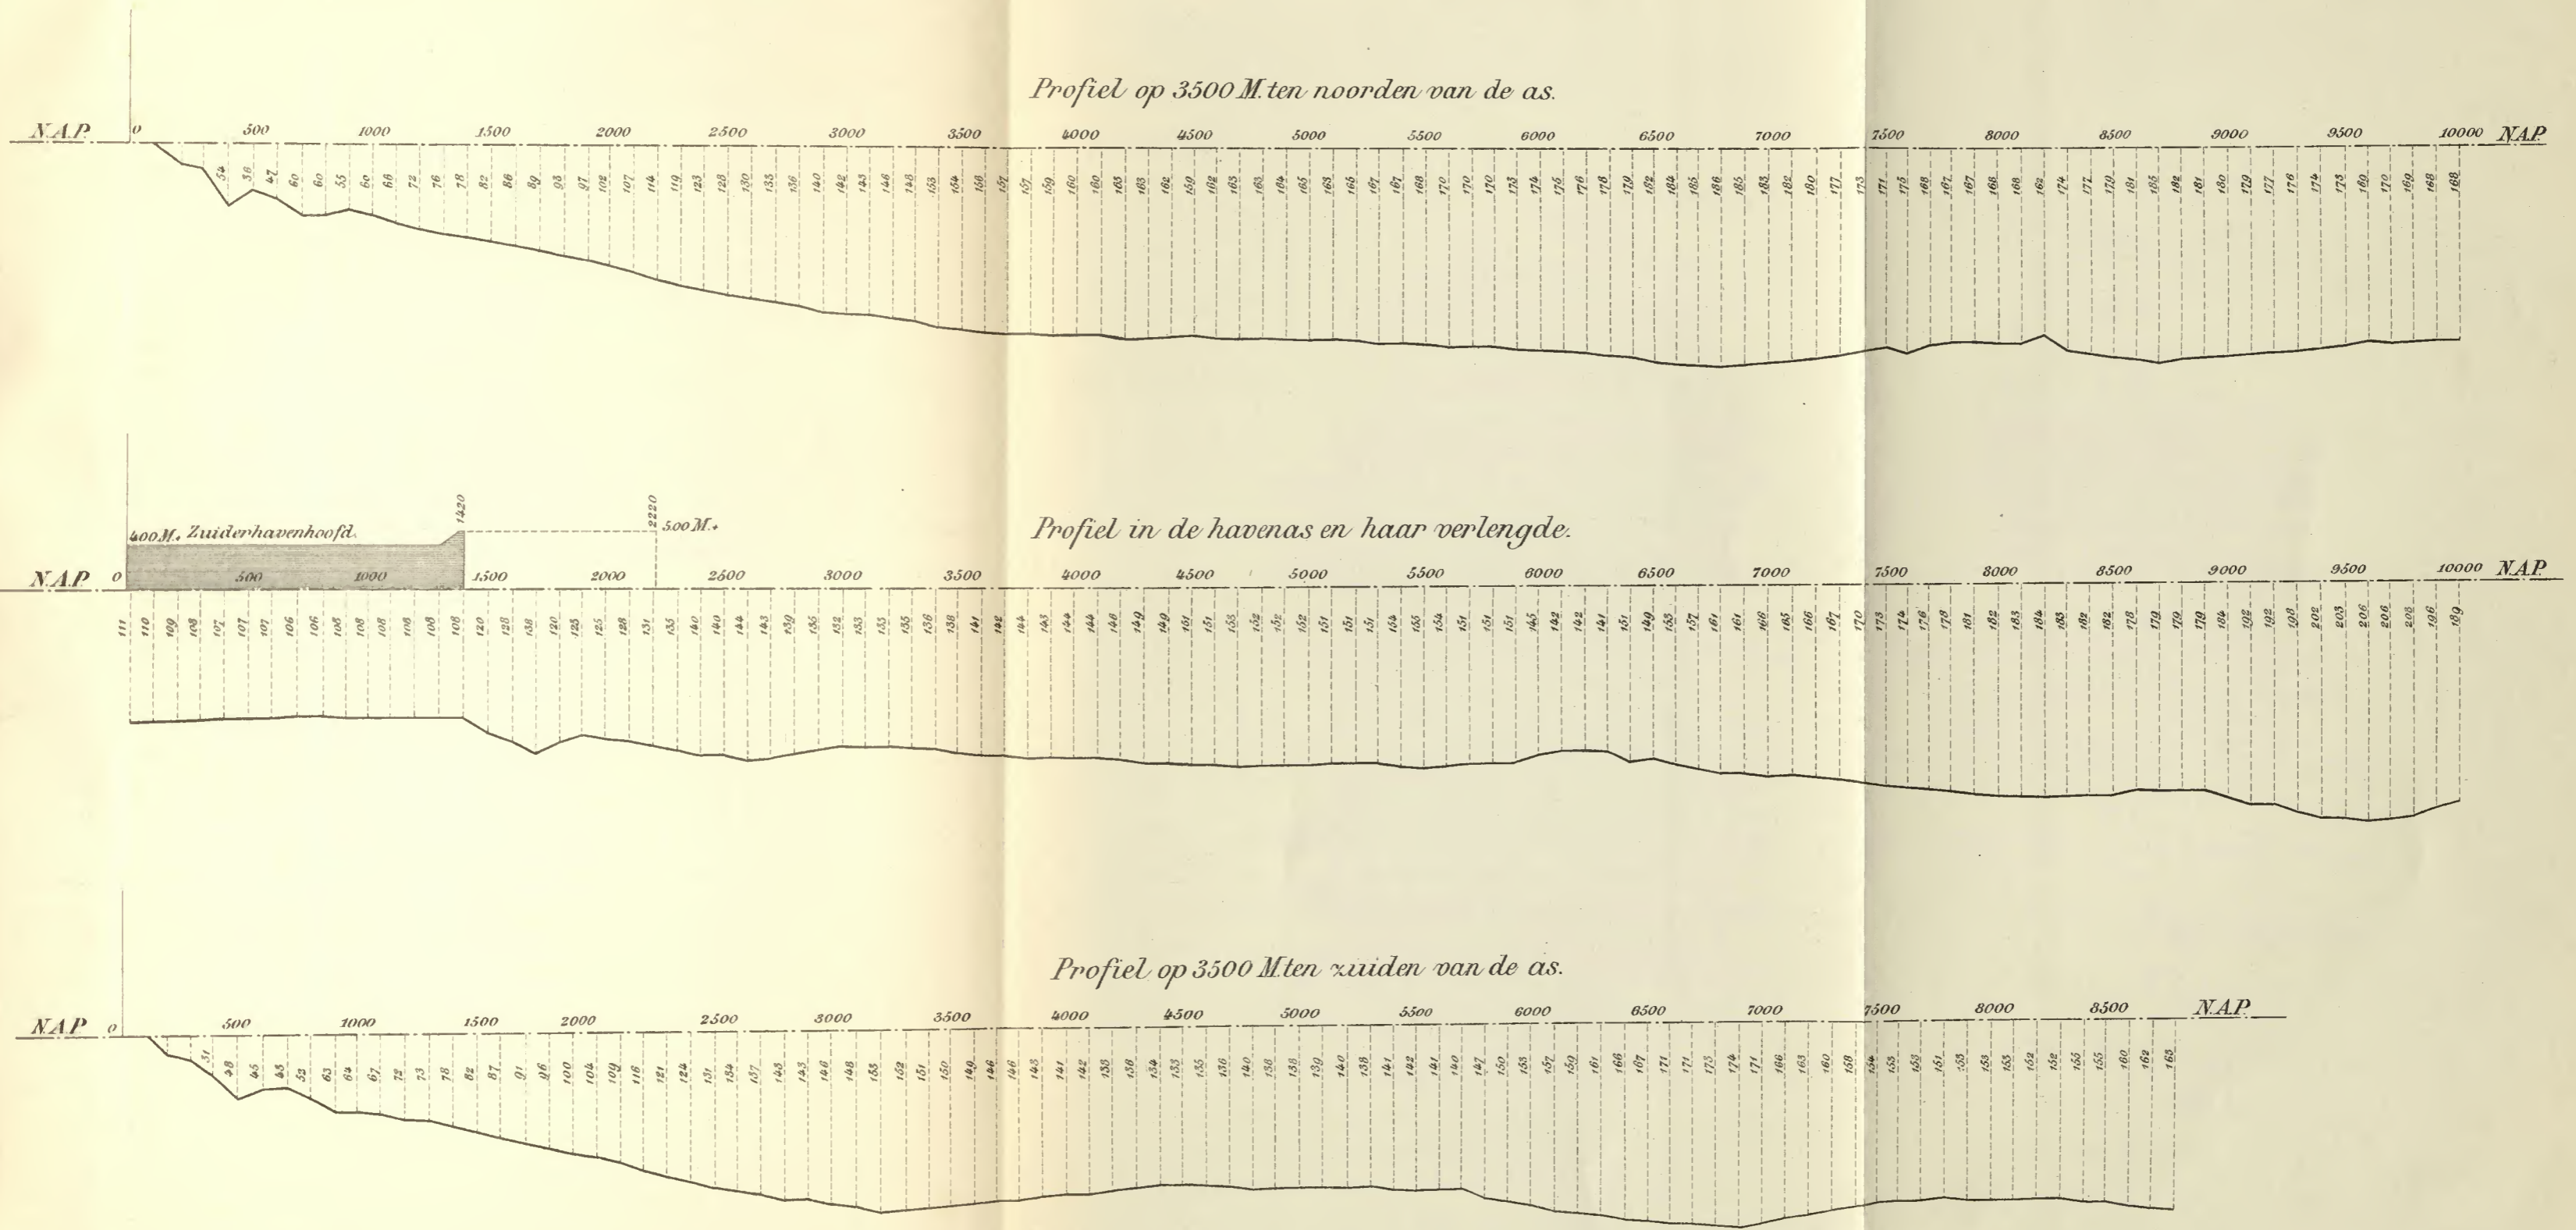 Profiel op 3500 M. ten noorden van de as.
N.A.P. 0 500 1000 1500 2000 2500 3000 3500 4000 4500 5000 5500 6000 6500 7000 7500 8000 8500 9000 9500 10000 N.A.P.
54 38 47 60 60 55 60 66 72 76 78 82 86 89 93 97 102 107 114 119 123 128 130 133 136 140 142 143 146 148 153 154 156 157 157 159 160 160 163 163 162 159 162 163 163 164 165 163 165 167 167 168 170 170 170 173 174 175 176 178 179 182 184 185 186 185 183 182 180 177 173 171 175 168 167 167 168 168 162 174 177 179 181 185 182 181 180 179 177 176 174 173 169 170 169 168 168
1420
2220
4.00 M.+ Zuiderhavenhoofd.
5.00 M.+
Profiel in de havenas en haar verlengde.
N.A.P. 0 500 1000 1500 2000 2500 3000 3500 4000 4500 5000 5500 6000 6500 7000 7500 8000 8500 9000 9500 10000 N.A.P.
111 110 109 108 107 107 107 106 106 108 108 108 108 108 108 120 128 138 120 123 125 128 131 135 140 140 144 143 139 135 132 133 133 135 136 138 141 142 144 143 144 144 146 149 149 151 151 153 152 152 152 151 151 151 154 155 154 151 151 151 145 142 142 141 151 149 153 157 161 161 166 165 166 167 170 173 174 176 178 181 182 183 184 183 182 182 178 179 179 179 184 192 192 198 202 203 206 206 203 196 189
Profiel op 3500 M. ten zuiden van de as.
N.A.P. 0 500 1000 1500 2000 2500 3000 3500 4000 4500 5000 5500 6000 6500 7000 7500 8000 8500 N.A.P.
31 48 45 43 52 63 64 67 72 73 78 82 87 91 96 100 104 109 116 121 124 131 134 137 143 143 146 148 153 152 151 150 149 146 146 143 141 142 138 136 134 133 135 136 140 138 138 139 140 138 141 142 141 140 147 150 153 157 159 161 166 167 171 171 173 174 171 166 163 160 158 154 153 153 151 153 153 153 152 152 155 155 160 162 163